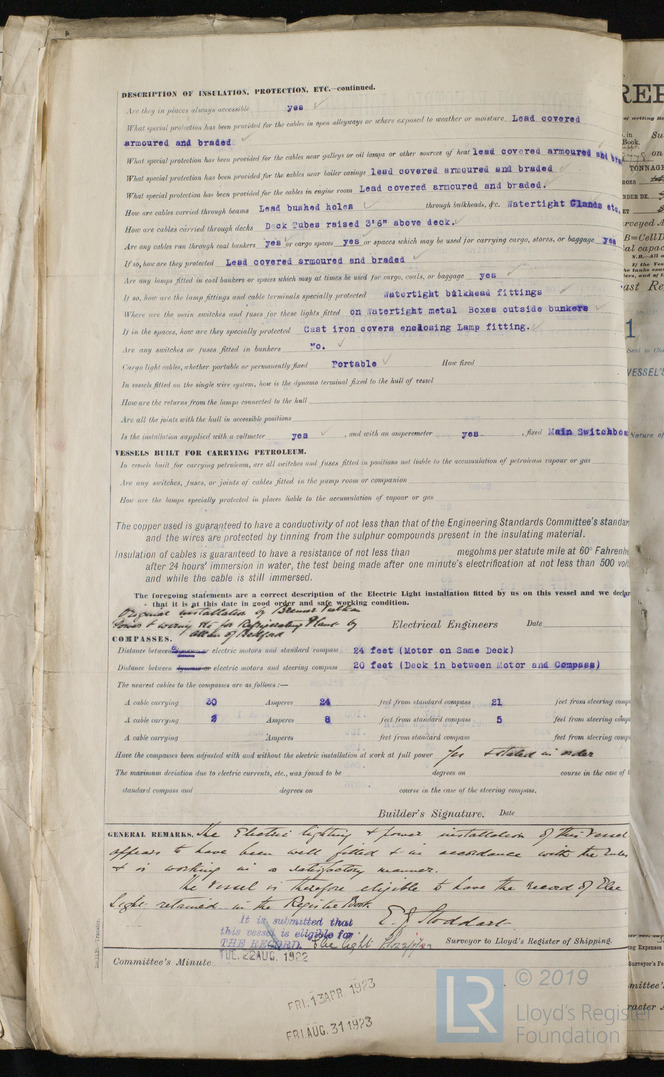 DESCRIPTION OF INSULATION, PROTECTION, ETC.—continued.
Are they in places always accessible yes
What special protection has been provided for the cables in open alleyways or where exposed to weather or moisture Lead covered
armoured and braded
What special protection has been provided for the cables near galleys or oil lamps or other sources of heat lead covered armoured and bra
What special protection has been provided for the cables near boiler casings lead covered armoured and braded
What special protection has been provided for the cables in engine room Lead covered armoured and braded.
How are cables carried through beams Lead bushed holes through bulkheads, &c. Watertight Glands etc.
How are cables carried through decks Deck Tubes raised 3'6" above deck.
Are any cables run through coal bunkers yes or cargo spaces yes or spaces which may be used for carrying cargo, stores, or baggage yes
If so, how are they protected Lead covered armoured and braded
Are any lamps fitted in coal bunkers or spaces which may at times be used for cargo, coals, or baggage yes
If so, how are the lamp fittings and cable terminals specially protected Watertight bulkhead fittings
Where are the main switches and fuses for these lights fitted on Watertight metal Boxes outside bunkers
If in the spaces, how are they specially protected Cast iron covers enclosing Lamp fitting.
Are any switches or fuses fitted in bunkers No.
Cargo light cables, whether portable or permanently fixed Portable How fixed
In vessels fitted on the single wire system, how is the dynamo terminal fixed to the hull of vessel
How are the returns from the lamps connected to the hull
Are all the joints with the hull in accessible positions
Is the installation supplied with a voltmeter yes , and with an amperemeter yes , fixed Main Switchbox
VESSELS BUILT FOR CARRYING PETROLEUM.
In vessels built for carrying petroleum, are all switches and fuses fitted in positions not liable to the accumulation of petroleum vapour or gas
Are any switches, fuses, or joints of cables fitted in the pump room or companion
How are the lamps specially protected in places liable to the accumulation of vapour or gas
The copper used is guaranteed to have a conductivity of not less than that of the Engineering Standards Committee's standar
and the wires are protected by tinning from the sulphur compounds present in the insulating material.
Insulation of cables is guaranteed to have a resistance of not less than megohms per statute mile at 60° Fahrenhe
after 24 hours' immersion in water, the test being made after one minute's electrification at not less than 500 volt
and while the cable is still immersed.
The foregoing statements are a correct description of the Electric Light installation fitted by us on this vessel and we declar
that it is at this date in good order and safe working condition.
Original installation by
Power & wiring etc for Refrigerating Plant by
Allen of Bedford
Electrical Engineers Date
COMPASSES.
Distance between electric motors and standard compass 24 feet (Motor on Same Deck)
Distance between electric motors and steering compass 20 feet (Deck in between Motor and Compass)
The nearest cables to the compasses are as follows:—
A cable carrying 30 Amperes 24 feet from standard compass 21 feet from steering comp
A cable carrying Amperes 8 feet from standard compass 5 feet from steering comp
A cable carrying Amperes feet from standard compass feet from steering comp
Have the compasses been adjusted with and without the electric installation at work at full power Yes & stated in order
The maximum deviation due to electric currents, etc., was found to be degrees on course in the case of t
standard compass and degrees on course in the case of the steering compass.
Builder's Signature. Date
GENERAL REMARKS. The Electric lighting & power installation of this Vessel
appears to have been well fitted & in accordance with the Rules
& is working in a satisfactory manner.
The Vessel is therefore eligible to have the record of Elec
Light retained in the Register Book.
E. J. Stoddart
It is submitted that
this vessel is eligible for
THE RECORD. Elec light
Surveyor to Lloyd's Register of Shipping.
TUE. 22 AUG. 1922
Committee's Minute
FRI. 13 APR. 1923
FRI. AUG. 31 1923
© 2019
LR
Lloyd's Register
Foundation